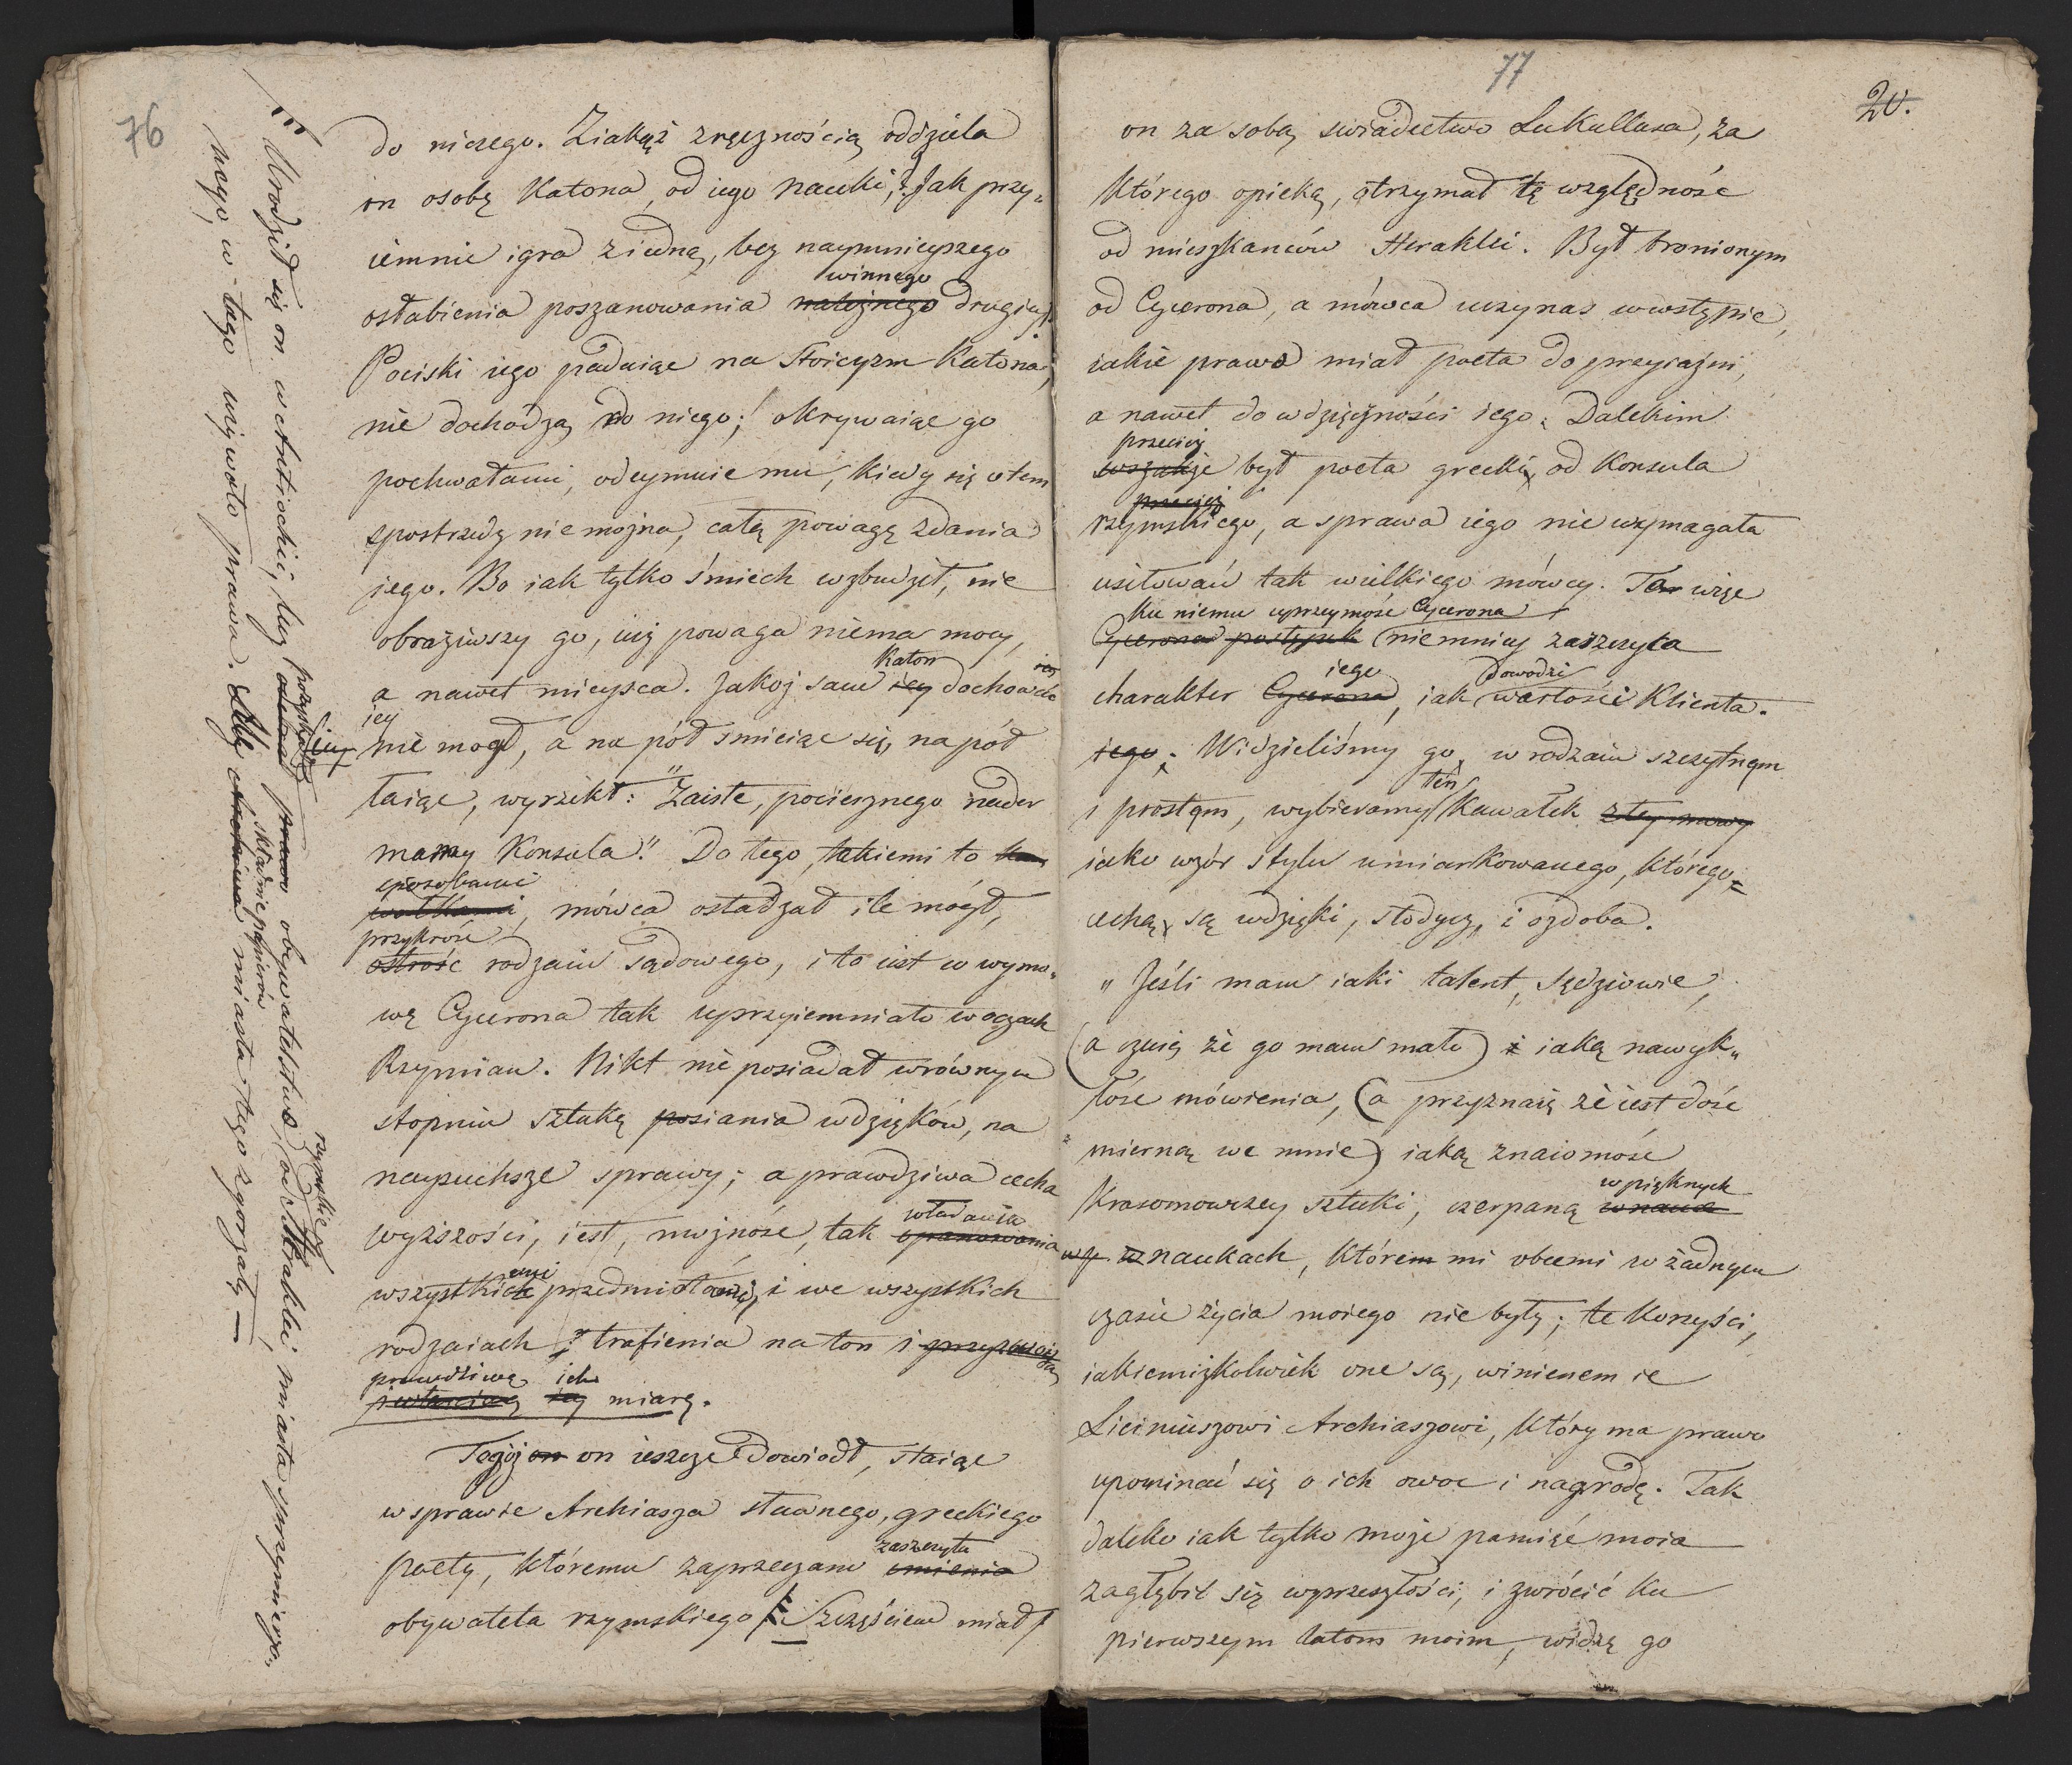 76
do niczego. Ziakąż zręcznością oddziela
on osobę Katona, od iego nauki,? Jak przy„
iemnie igra ziedną, bez naymnieyszego
winnego
osłabienia poszanowania należnego drugiey.
Pociski iego padaiąc na Stoicyzm Katona,
nie dochodzą do niego; okrywaiąc go
pochwałami, odeymuie mu, kiedy się wtem
spostrzedz nie można, całą powagę zdania
jego. Bo iak tylko śmiech wzbudził, nie
obraziwszy go, iuż powaga niema mocy,
Katon
a nawet mieysca. Jakoż sam iey dochować
iey
nie mogł, a na pół smieiąc się, na pół
łaiąc, wyrzekł: "Zaiste, pociesznego nader
mamy Konsula." Do tego, takiemi to
sposobami
mówca osładzał ile mógł,
przykrość
ostrość rodzaiu sądowego, i to iest co wymo„
wę Cycerona tak uprzyiemniało woczach
Rzymian. Nikt nie posiadał wrównym
stopniu sztukę posiania wdzięków, na
naysuchsze sprawy; a prawdziwa cecha
władania
wyższości, iest, możność, tak opanowania
wszystkiemi przedmiotami, i we wszystkich
rodzaiach; trafienia na ton i
prawdziwą ich
i właściwą iey miarę.
Tegoż on on ieszcze dowiodł, staiąc
w sprawie Archiasza sławnego, greckiego
zaszczytu
poety, któremu zaprzeczano imienia
obywatela rzymskiego Szczęściem miał
Urodził się on w Antiochii, lecz pozyskał prawo obywatelstwa rzymskie od Heraklei, miasta sprzymierzo„
składnie papierów
nego, w tego używało prawa. Gdy miasta tego zgorzały —
77
20.
on za sobą swiadectwo Lukullusa, za
którego opieką, otrzymał tę względność
od mieszkańców Heraklei. Był bronionym
od Cycerona, a mówca uczy nas wwstępie,
iakie prawo miał poeta do przyiaźni,
a nawet do wdzięczności iego. Dalekim
przecież
wszakże był poeta grecki, od Konsula
przecież
rzymskiego, a sprawa iego nie wymagała
usiłowań tak wielkiego mówcy. Ta więc
ku niemu uprzeymość Cycerona
Cycerona postępek niemniey zaszczyca
iego dowodzi
charakter Cycerona, iak wartości Klienta.
iego. Widzieliśmy go, w rodzaiu szczytnym
ten
i prostym, wybieramy kawałek z tey mowy
iako wzór stylu umiarkowanego, którego=
cechą, są wdzięki, słodycz, i ozdoba.
„Jeśli mam iaki talent, Sędziowie,
(a czuię że go mam mało) i iaką nawyk„
łość mówienia, (a przyznaię że iest dość
mierną we mnie) iaką znaiomość
w pięknych
Krasomowczey sztuki, czerpaną w nauk
naukach, którem mi obcemi w żadnym
czasie życia moiego nie były; te korzyści,
iakiemiżkolwiek one są, winienem ie
Liciniuszowi Archiaszowi, który ma prawo
upominać się o ich owoc i nagrodę. Tak
daleko iak tylko może pamięć moia
zagłębić się wprzeszłości, i zwrócić ku
pierwszym latom moim, widzę go